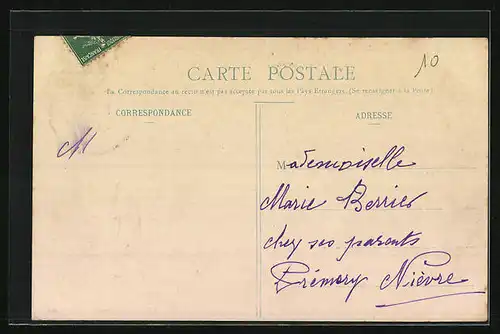 CARTE POSTALE
10
La Correspondance au recto n'est pas acceptée par tous les Pays Étrangers. (Se renseigner à la Poste)
CORRESPONDANCE
ADRESSE
M
Mademoiselle
Marie Berrier
chez ses parents
Prémery Nièvre